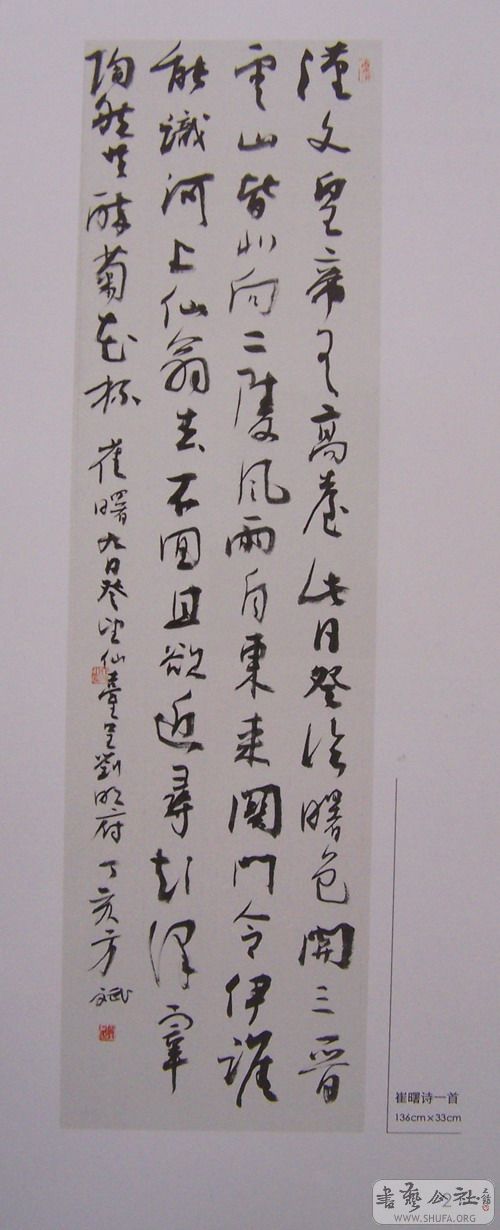 漢文皇帝有高臺此日登臨曙色開三晉
雲山皆北向二陵風雨自東來關門令伊誰
能識河上仙翁去不回且欲近尋彭澤宰
陶然共醉菊花杯 崔曙九日登望仙臺呈劉明府 丁亥方斌
崔曙诗一首
136cm×33cm
WWW.SHUFA.ORG